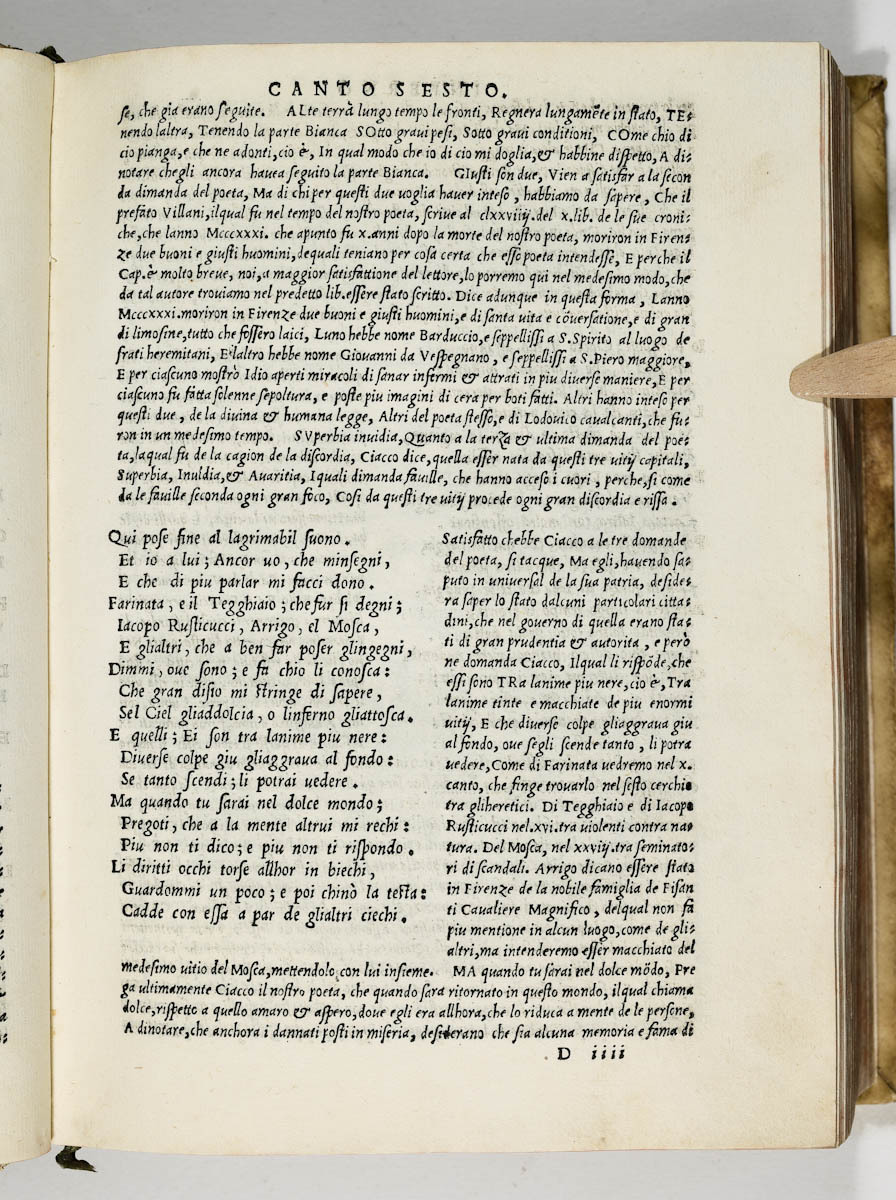 CANTO SESTO.
se, che gia erano seguite. ALte terrà lungo tempo le fronti, Regnera lungamẽte in stato, TE⸗
nendo laltra, Tenendo la parte Bianca SOtto graui pesi, Sotto graui conditioni, COme chio di
cio pianga, e che ne adonti, cio è, In qual modo che io di cio mi doglia, & habbine dispetto, A di⸗
notare chegli ancora hauea seguito la parte Bianca. GIusti son due, Vien a satisfar a la secon
da dimanda del poeta, Ma di chi per questi due uoglia hauer inteso, habbiamo da sapere, Che il
prefato Villani, ilqual fu nel tempo del nostro poeta, scriue al clxxviiij. del x. lib. de le sue croni⸗
che, che lanno Mcccxxxi. che apunto fu x. anni dopo la morte del nostro poeta, moriron in Firen⸗
ze due buoni e giusti huomini, dequali teniano per cosa certa che esso poeta intendesse, E perche il
Cap. è molto breue, noi, a maggior satisfattione del lettore, lo porremo qui nel medesimo modo, che
da tal autore trouiamo nel predetto lib. essere stato scritto. Dice adunque in questa forma, Lanno
Mcccxxxi. moriron in Firenze due buoni e giusti huomini, e di santa uita e cõuersatione, e di gran
di limosine, tutto che fossero laici, Luno hebbe nome Barduccio, e seppellissi a S. Spirito al luogo de
frati heremitani, E laltro hebbe nome Giouanni da Vespegnano, e seppellissi a S. Piero maggiore,
E per ciascuno mostrò Idio aperti miracoli di sanar infermi & attrati in piu diuerse maniere, E per
ciascuno fu fatta solenne sepoltura, e poste piu imagini di cera per boti fatti. Altri hanno inteso per
questi due, de la diuina & humana legge, Altri del poeta stesso, e di Lodouico caualcanti, che fu⸗
ron in un medesimo tempo. SVperbia inuidia, Quanto a la terza & ultima dimanda del poe⸗
ta, laqual fu de la cagion de la discordia, Ciacco dice, quella esser nata da questi tre uitij capitali,
Superbia, Inuidia, & Auaritia, I quali dimanda fauille, che hanno acceso i cuori, perche, si come
da le fauille seconda ogni gran foco, Cosi da questi tre uitij procede ogni gran discordia e rissa.
Qui pose fine al lagrimabil suono.
Et io a lui; Ancor uo, che minsegni,
E che di piu parlar mi facci dono.
Farinata, e il Tegghiaio; che fur si degni;
Iacopo Rusticucci, Arrigo, el Mosca,
E glialtri, che a ben far poser glingegni,
Dimmi, oue sono; e fa chio li conosca:
Che gran disio mi stringe di sapere,
Sel Ciel gliaddolcia, o linferno gliattosca.
E quelli; Ei son tra lanime piu nere:
Diuerse colpe giu gliaggraua al fondo:
Se tanto scendi; li potrai uedere.
Ma quando tu sarai nel dolce mondo;
Pregoti, che a la mente altrui mi rechi:
Piu non ti dico; e piu non ti rispondo.
Li diritti occhi torse allhor in biechi,
Guardommi un poco; e poi chinò la testa:
Cadde con essa a par de glialtri ciechi.
Satisfatto chebbe Ciacco a le tre domande
del poeta, si tacque, Ma egli, hauendo sa⸗
puto in uniuersal de la sua patria, deside⸗
ra saper lo stato dalcuni particolari citta⸗
dini, che nel gouerno di quella erano sta⸗
ti di gran prudentia & autorita, e però
ne domanda Ciacco, Ilqual li rispõde, che
essi sono TRa lanime piu nere, cio è, Tra
lanime tinte e macchiate de piu enormi
uitij, E che diuerse colpe gliaggraua giu
al fondo, oue segli scende tanto, li potra
uedere, Come di Farinata uedremo nel x.
canto, che finge trouarlo nel sesto cerchio
tra gliheretici. Di Tegghiaio e di Iacopo
Rusticucci nel. xvi. tra uiolenti contra na⸗
tura. Del Mosca, nel xxviij. tra seminato⸗
ri di scandali. Arrigo dicano essere stato
in Firenze de la nobile famiglia de Fisan
ti Caualiere Magnifico, delqual non fa
piu mentione in alcun luogo, come de gli⸗
altri, ma intenderemo esser macchiato del
medesimo uitio del Mosca, mettendolo con lui insieme. MA quando tu sarai nel dolce mõdo, Pre
ga ultimamente Ciacco il nostro poeta, che quando sara ritornato in questo mondo, ilqual chiama
dolce, rispetto a quello amaro & aspero, doue egli era allhora, che lo riduca a mente de le persone,
A dinotare, che anchora i dannati posti in miseria, desiderano che sia alcuna memoria e fama di
D iiii